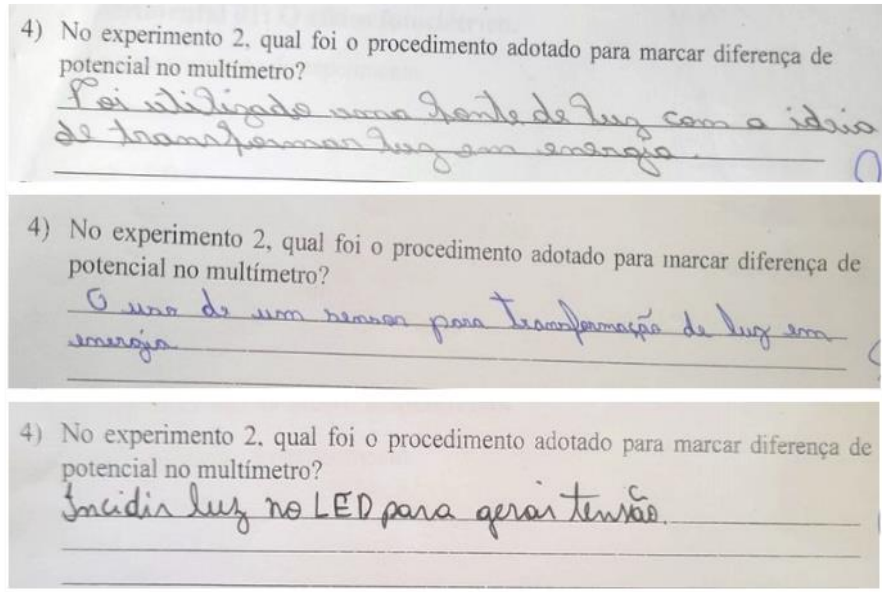 4) No experimento 2, qual foi o procedimento adotado para marcar diferença de
potencial no multímetro?
Foi utilizado uma fonte de luz com a ideia
de transformar luz em energia.
4) No experimento 2, qual foi o procedimento adotado para marcar diferença de
potencial no multímetro?
O uso de um sensor para transformação de luz em
energia
4) No experimento 2, qual foi o procedimento adotado para marcar diferença de
potencial no multímetro?
Incidir luz no LED para gerar tensão.